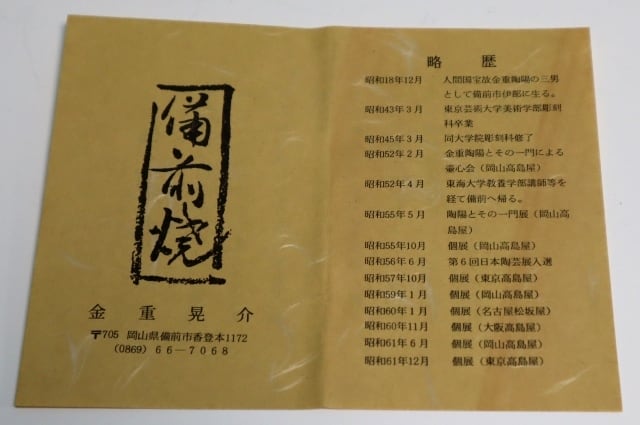 備前焼
金重晃介
〒705 岡山県備前市香登本1172
(0869) 66-7068
略歴
昭和18年12月 人間国宝故金重陶陽の三男
として備前市伊部に生る。
昭和43年3月 東京芸術大学美術学部彫刻
科卒業
昭和45年3月 同大学院彫刻科修了
昭和52年2月 金重陶陽とその一門による
壷心会(岡山高島屋)
昭和52年4月 東海大学教養学部講師等を
経て備前へ帰る。
昭和55年5月 陶陽とその一門展(岡山高
島屋)
昭和55年10月 個展(岡山高島屋)
昭和56年6月 第6回日本陶芸展入選
昭和57年10月 個展(東京高島屋)
昭和59年1月 個展(岡山高島屋)
昭和60年1月 個展(名古屋松坂屋)
昭和60年11月 個展(大阪高島屋)
昭和61年6月 個展(岡山高島屋)
昭和61年12月 個展(東京高島屋)